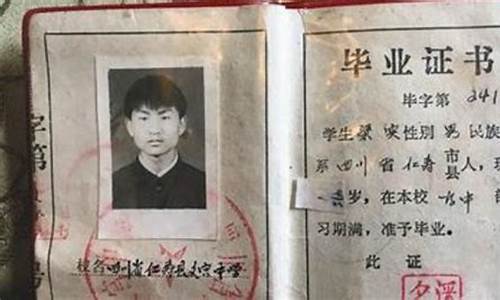 字第
号
校名四川省仁寿县文宫中学
毕业证书
毕字第 241
学生梁 性别 男 民族
系四川省仁寿市县人，现
岁，在本校 高中
习期满，准予毕业。
此 证